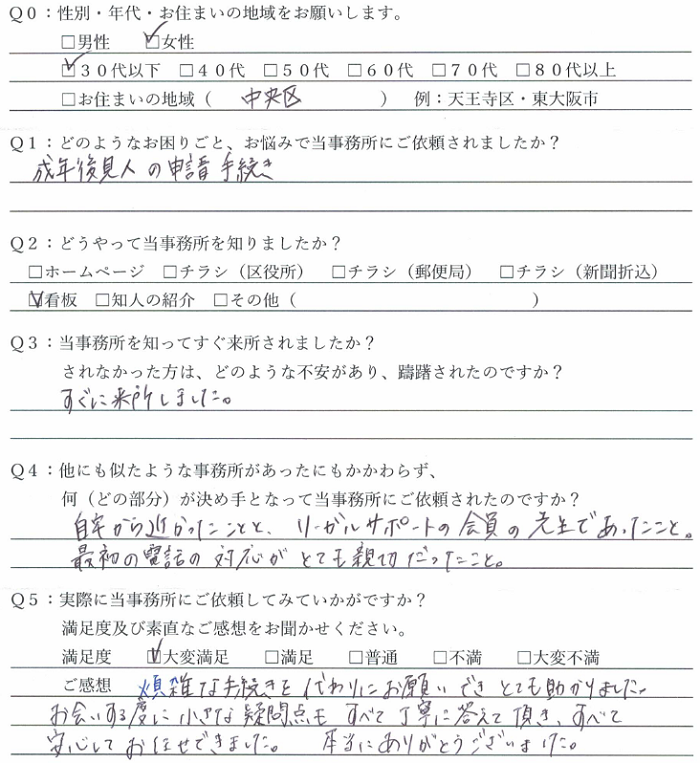 Q0：性別・年代・お住まいの地域をお願いします。
□男性 ☑女性
☑30代以下 □40代 □50代 □60代 □70代 □80代以上
□お住まいの地域（ 中央区 ） 例：天王寺区・東大阪市
Q1：どのようなお困りごと、お悩みで当事務所にご依頼されましたか？
成年後見人の申請手続き
Q2：どうやって当事務所を知りましたか？
□ホームページ □チラシ（区役所） □チラシ（郵便局） □チラシ（新聞折込）
☑看板 □知人の紹介 □その他（ ）
Q3：当事務所を知ってすぐ来所されましたか？
されなかった方は、どのような不安があり、躊躇されたのですか？
すぐに来所しました。
Q4：他にも似たような事務所があったにもかかわらず、
何（どの部分）が決め手となって当事務所にご依頼されたのですか？
自宅から近かったことと、リーガルサポートの会員の先生であったこと。
最初の電話の対応がとても親切だったこと。
Q5：実際に当事務所にご依頼してみていかがですか？
満足度及び素直なご感想をお聞かせください。
満足度 ☑大変満足 □満足 □普通 □不満 □大変不満
ご感想 煩雑な手続きを代わりにお願いできとても助かりました。
お会いする度に小さな疑問点もすべて丁寧に答えて頂き、すべて
安心してお任せできました。 本当にありがとうございました。